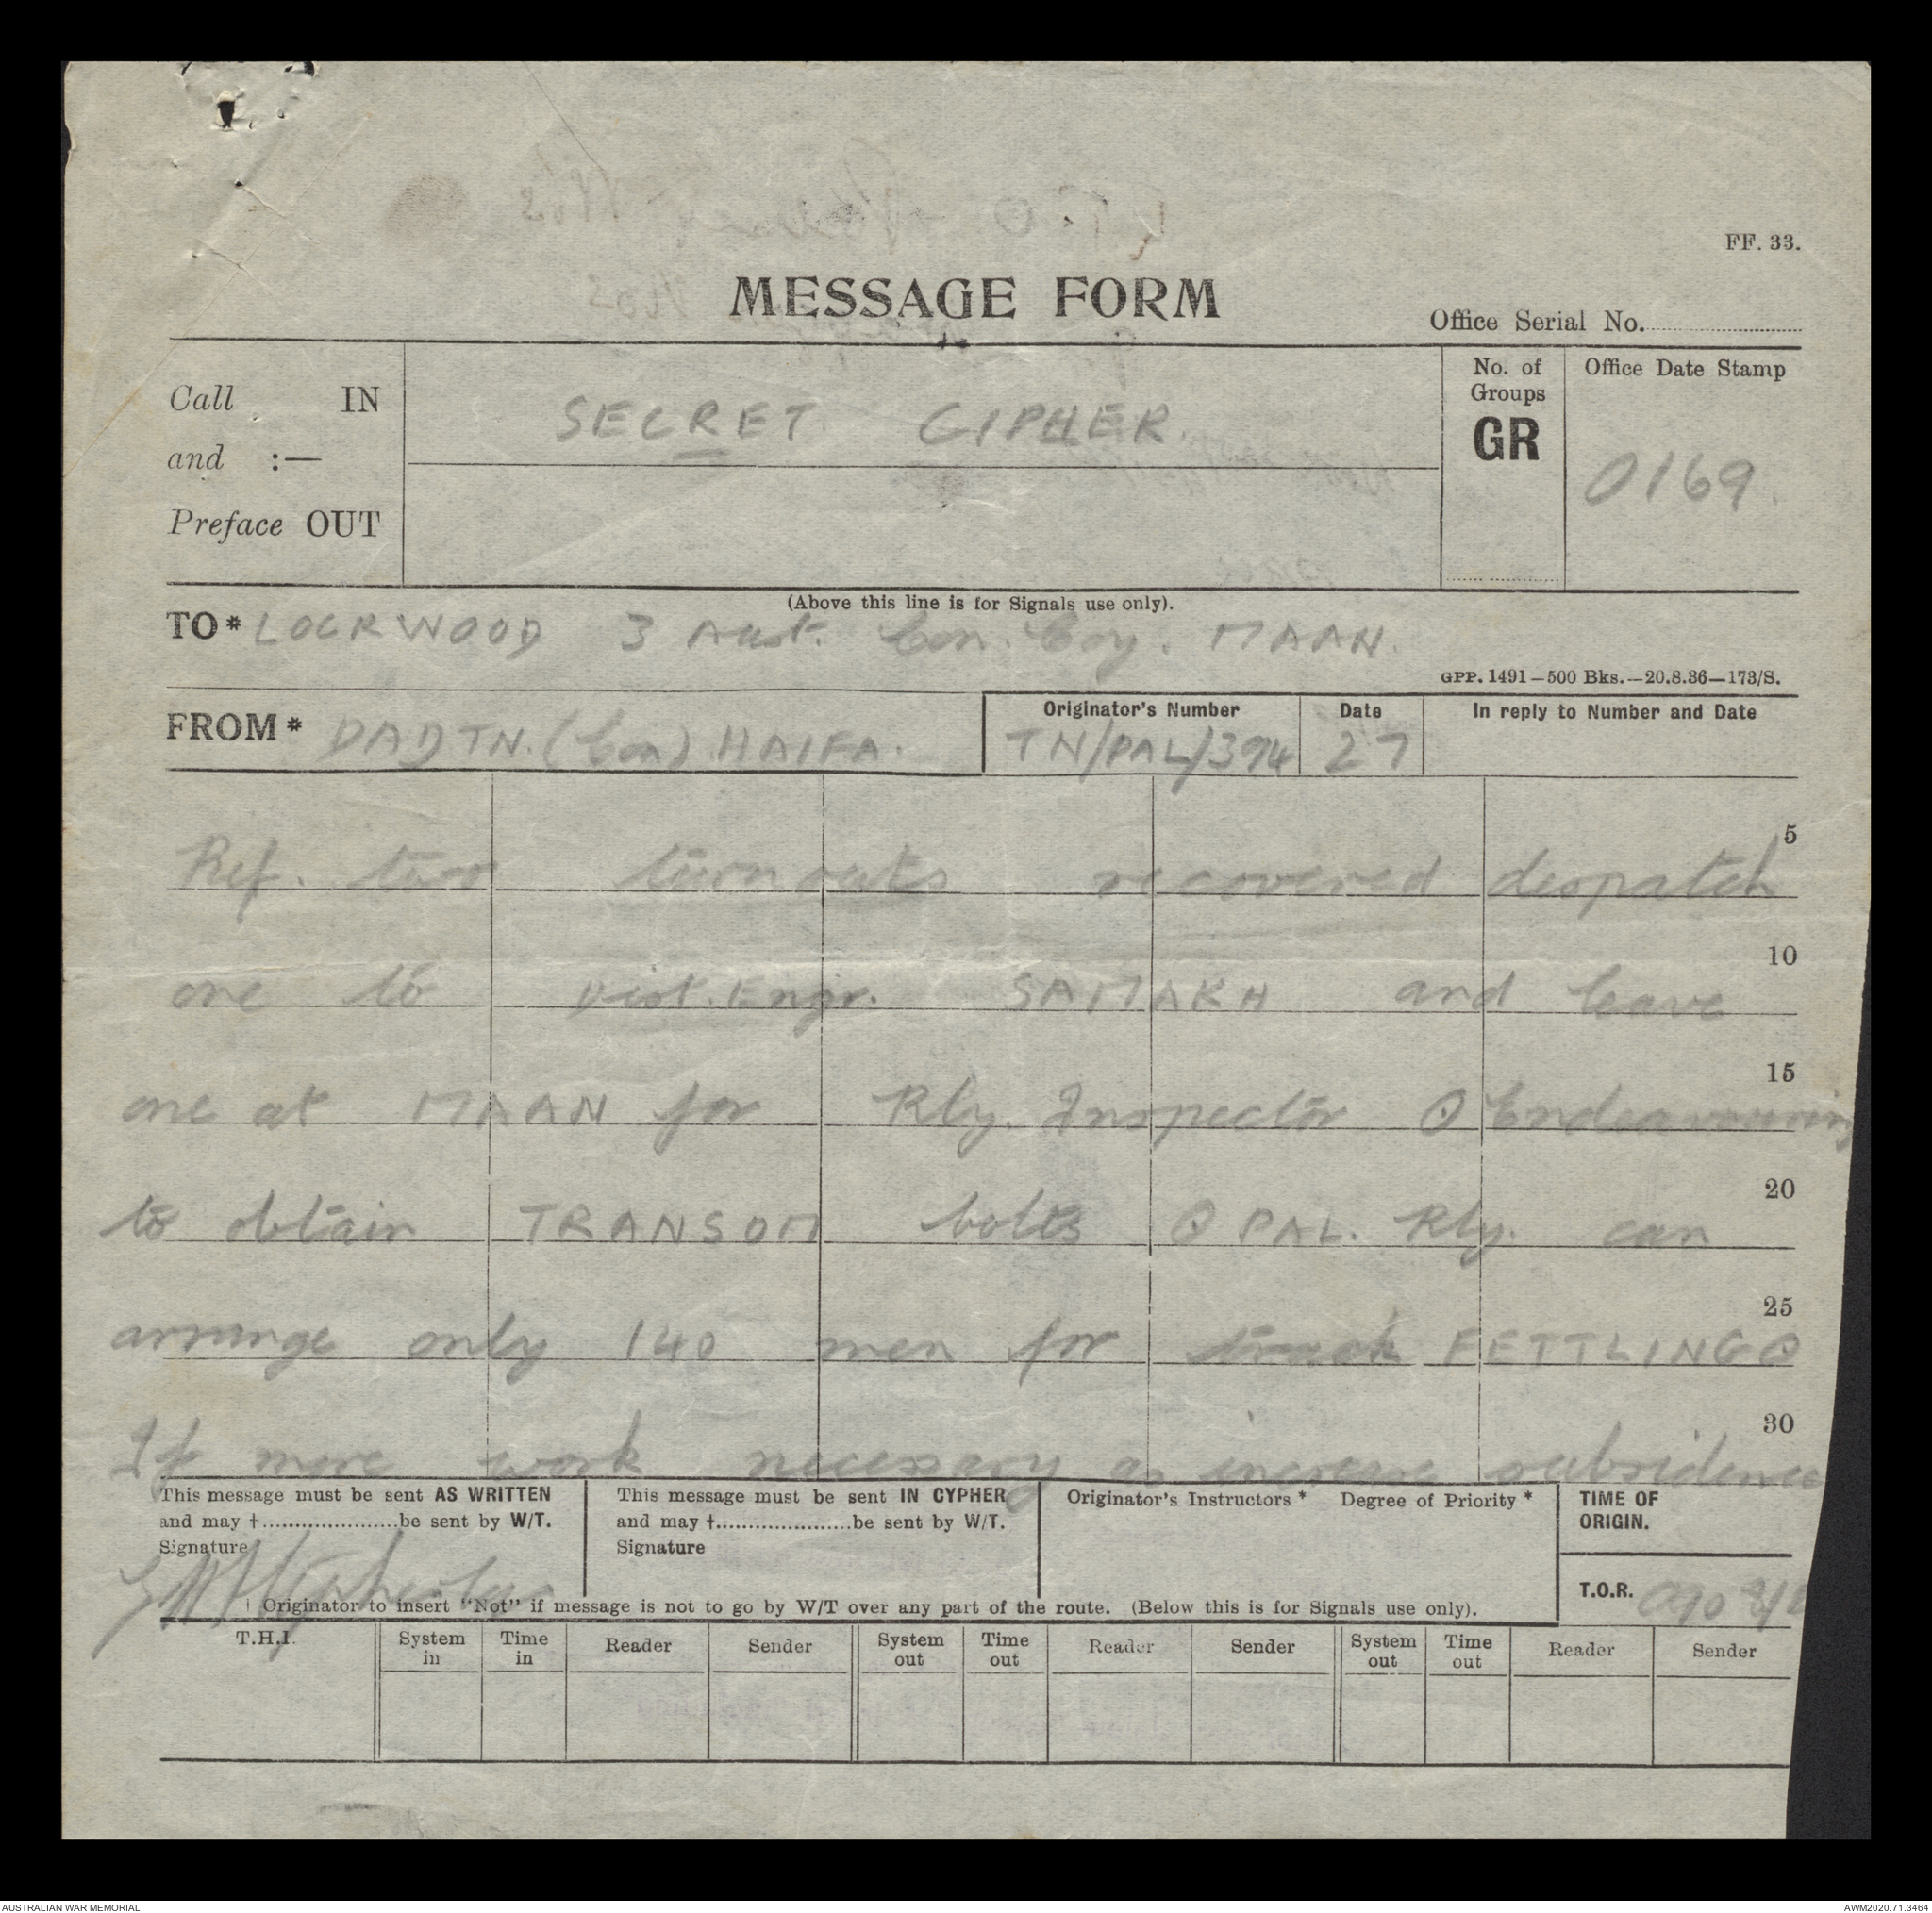 FF. 33.
MESSAGE FORM
Office Serial No.
Call IN
and :—
Preface OUT
SECRET CIPHER.
No. of Groups
GR
Office Date Stamp
0169.
(Above this line is for Signals use only).
TO* LOCKWOOD 3 Aust. Con. Coy. MAAN.
GPP. 1491—500 Bks.—20.8.36—173/S.
FROM* DADTN. (Con) HAIFA.
Originator's Number
TN/PAL/394
Date
27
In reply to Number and Date
Ref. two turnouts recovered despatch
5
one to Dist. Engr. SAMAKH and leave
10
one at MAAN for Rly. Inspector O Endeavouring
15
to obtain TRANSOM bolts O PAL. Rly. can
20
arrange only 140 men for track FETTLING O
25
If more work necessary as increase subsidence
30
This message must be sent AS WRITTEN
and may †.....................be sent by W/T.
Signature
This message must be sent IN CYPHER
and may †.....................be sent by W/T.
Signature
Originator's Instructors * Degree of Priority *
TIME OF ORIGIN.
T.O.R.
† Originator to insert "Not" if message is not to go by W/T over any part of the route. (Below this is for Signals use only).
T.H.I. System in Time in Reader Sender System out Time out Reader Sender System out Time out Reader Sender
AUSTRALIAN WAR MEMORIAL
AWM2020.71.3464